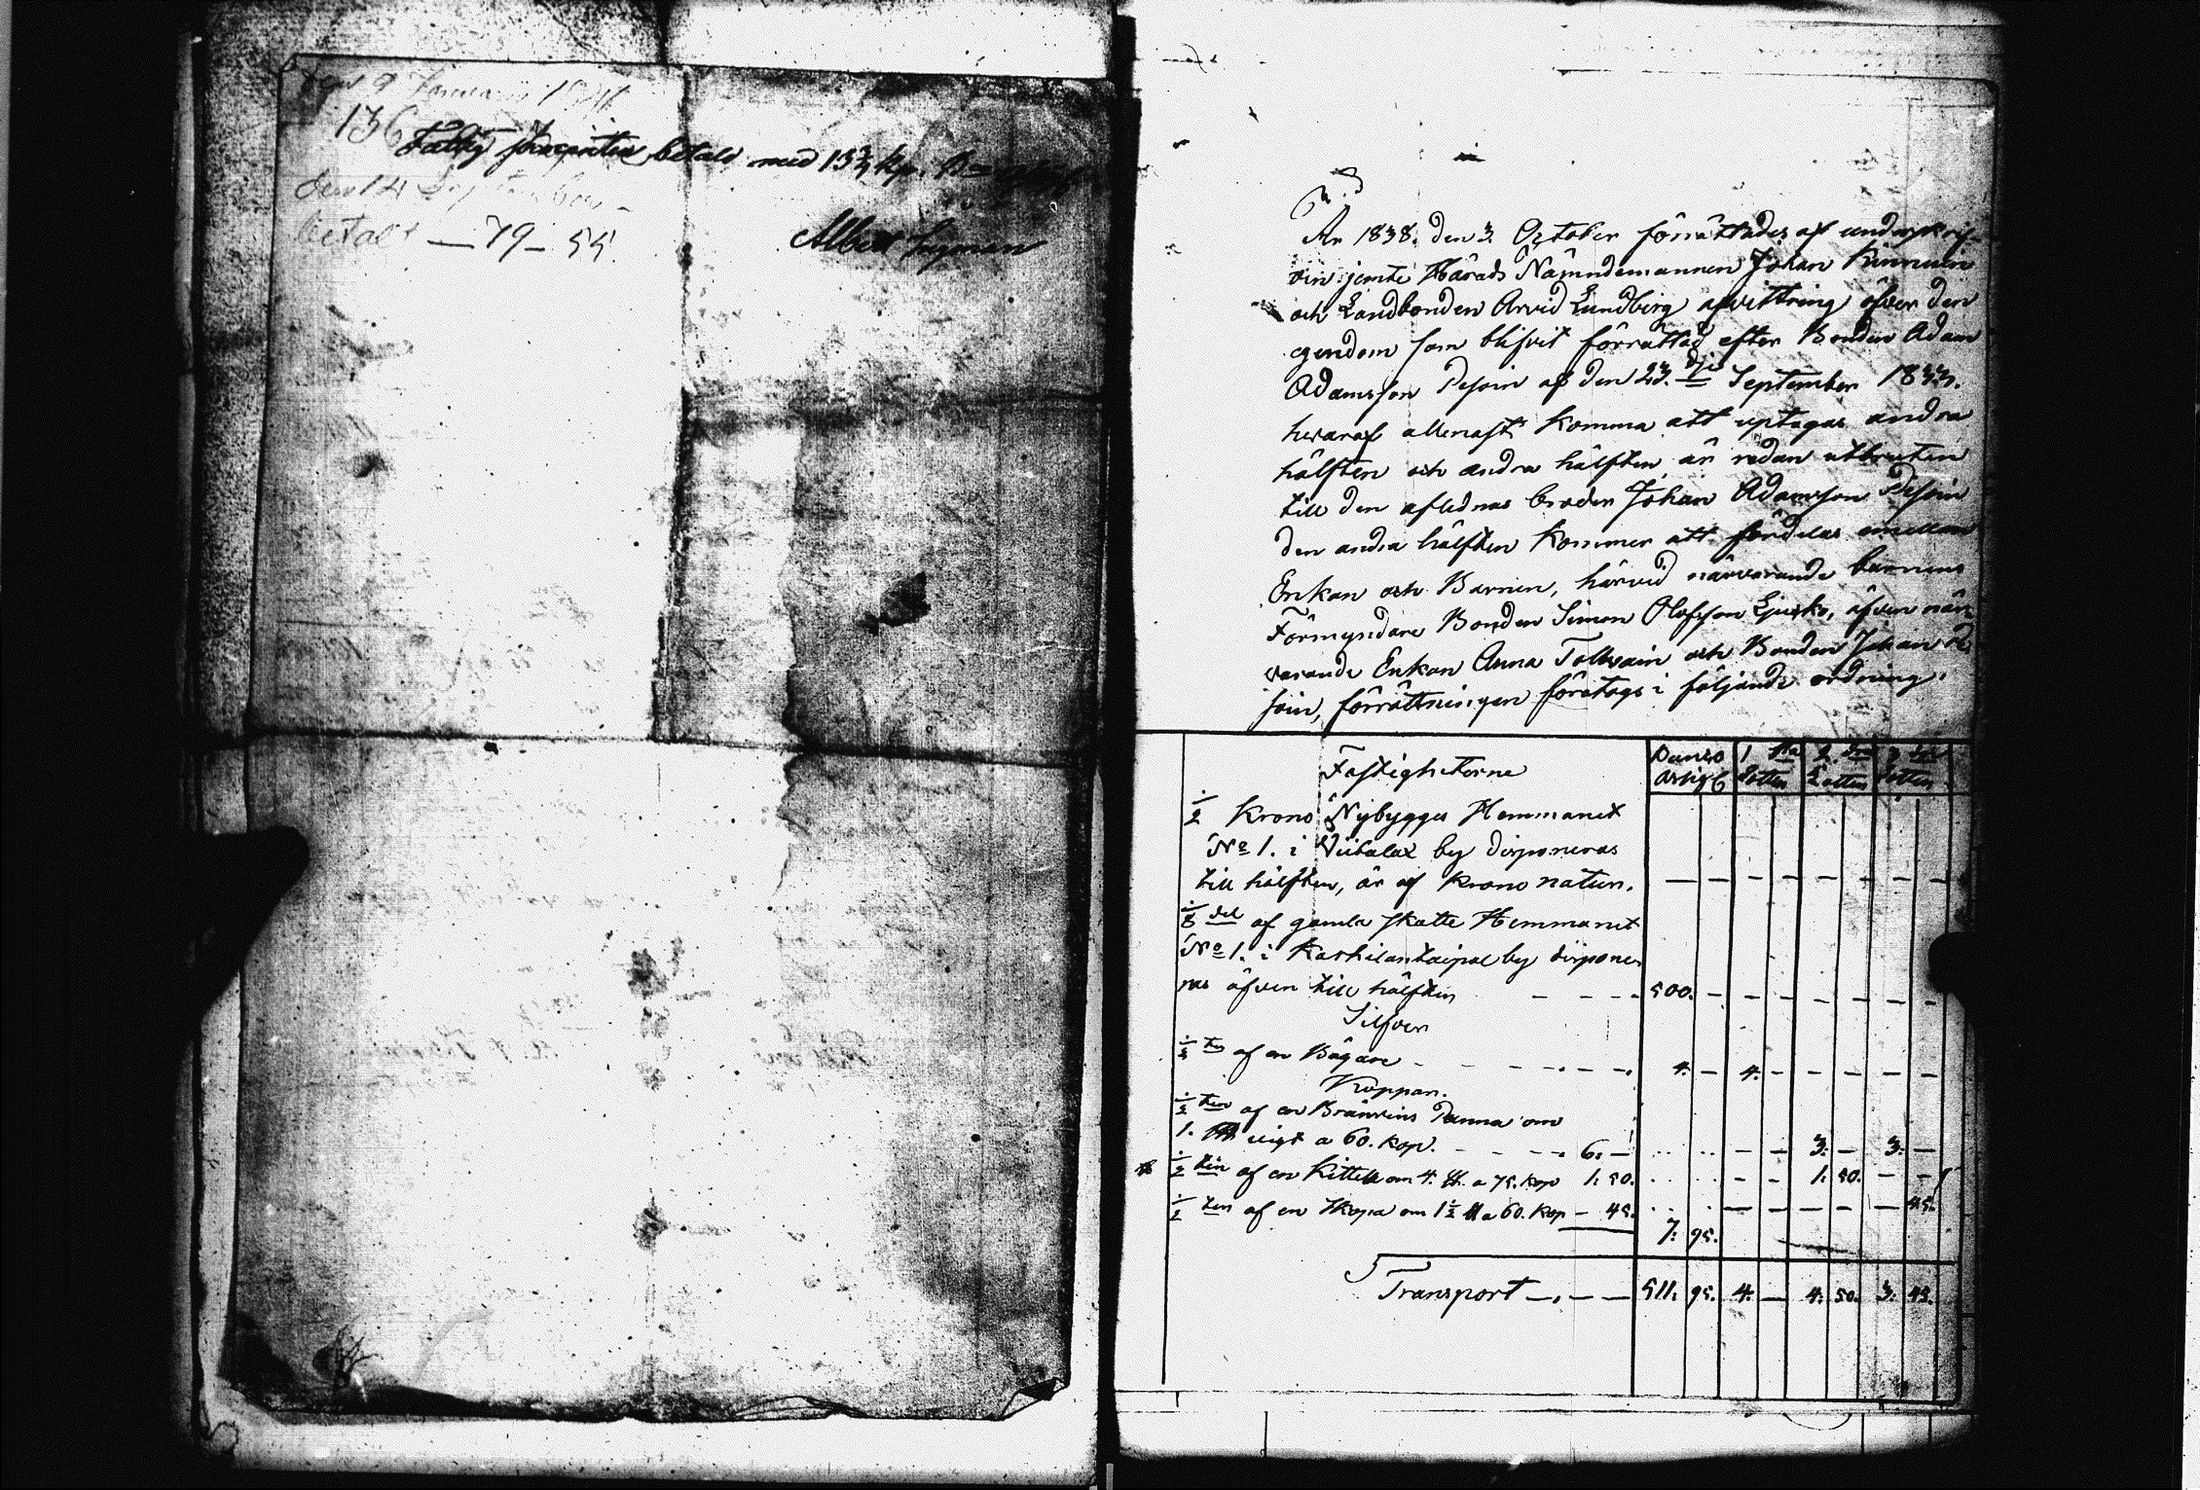 den 9 Januari
136
Fattig procenten betald med 13¾ kp.
den 14 September
betalt — 79 – 55.
Albert Ingman
År 1838. den 3. October förrättades af undeskrif-
ven jemte Härads Nämndemannen Johan Kinnuin
och Landbonden Arvid Lundberg afvittring öfver den
egendom som blifvit förrättad efter Bonden Adam
Adamsson Pesoin af den 23. dje September 1833.
hvaraf allenast komma att uptagas andra
hälften och andra hälften är redan utbruten
till den aflednas broder Johan Adamsson Pesoin
den andra hälften kommer att fördelas emellan
Enkan och Barnen, härvid närvarande barnens
Förmyndare Bonden Simon Olofsson Ljusko, äfven när
varande Enkan Anna Tolvain och Bonden Johan Pe
soin, förrättningen företogs i följande ordning.
Fastigheterne
1 sta Lotten 2 dra Lotten 3 dje Lotten
½ Krono Nybygges Hemmanet
No 1. i Viitalax by disponeras
till hälften, är af Krono natur. — — — — — — — —
⅛ del af gamla skatte Hemmanet
No 1. i Karhilantaipal by dispone-
ras äfven till hälften - - - - 500. — — — — — — —
Silfver
½ ten af en Bägare - - - - - - 4. — 4. — — — — —
Koppar.
½ ten af en Bränvins Panna om
1. ℔ vigt a 60. kop. - - - - 6. — — — 3. — 3. —
½ ten af en Kittel om 4. ℔. a 75. kop 1. 50. - - 1. 50. — —
½ ten af en Skopa om 1½ ℔ a 60. kop — 45. — — — — — 45.
7. 95.
Transport — . — — 511. 95. 4. — 4. 50. 3. 45.